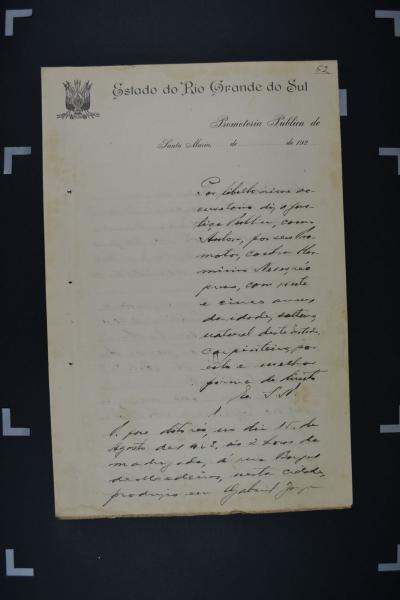 52
Estado do Rio Grande do Sul
Promotoria Publica de
Santa Maria, de de 192
Por libello crime ac-
cusatorio diz a Jus-
tiça Publica, como
Autora, por seu Pro-
motor, contra Her-
minio réo
preso, com vinte
e cinco annos
de idade, solteiro,
natural deste Estado,
carpinteiro, por
esta e melhor
forma de direito
E. S. N.
1.
P. que o réo, no dia 15 de
Agosto de 1923, ás 2 horas da
madrugada, á rua Borges
de Medeiros, nesta cidade,
produziu em Gabriel